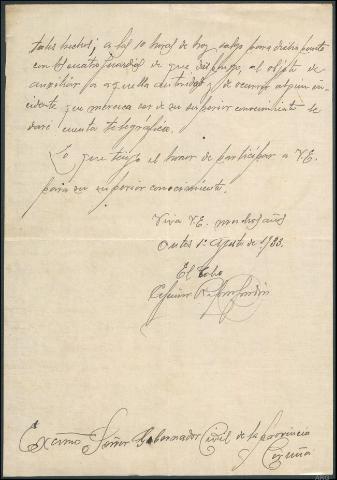 tales hechos; a las 10 horas de hoy salgo para dicho punto
con los cuatro guardias de que dispongo, al objeto de
auxiliar a aquella autoridad; de ocurrir algun in-
cidente que merezca ser de su superior conocimiento le
daré cuenta telegráfica.
Lo que tengo el honor de participar a V.E.
para su superior conocimiento.
Viva V.E. muchos años
Outes 1º Agosto de 1933.
El Cabo
Exermo Señor Gobernador Civil de la provincia
Coruña